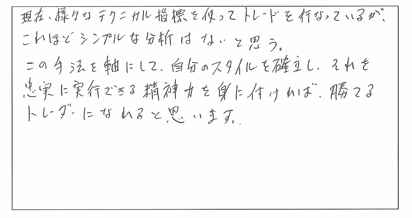 現在、様々なテクニカル指標を使ってトレードを行なっているが、
これほどシンプルな分析はないと思う。
この手法を軸にして、自分のスタイルを確立し、それを
忠実に実行できる精神力を身に付ければ、勝てる
トレーダーになれると思います。